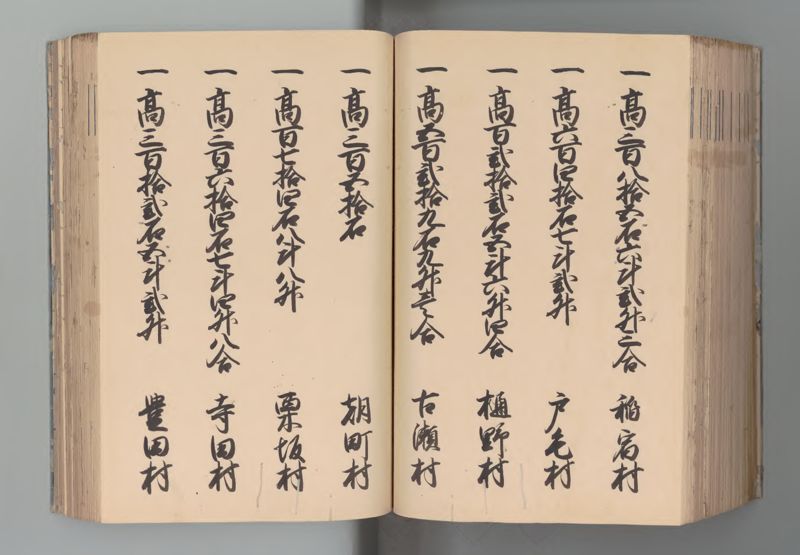 一高三百八拾五石六斗弐升三合　稲宿村
一高六百四拾石七斗弐升　戸毛村
一高百弐拾弐石五斗六升四合　樋野村
一高五百弐拾九石九升壱合　古瀬村
一高三百五拾石　朝町村
一高百七拾四石八斗八升　栗坂村
一高三百六拾四石七斗四升八合　寺田村
一高三百拾弐石五斗弐升　豊田村